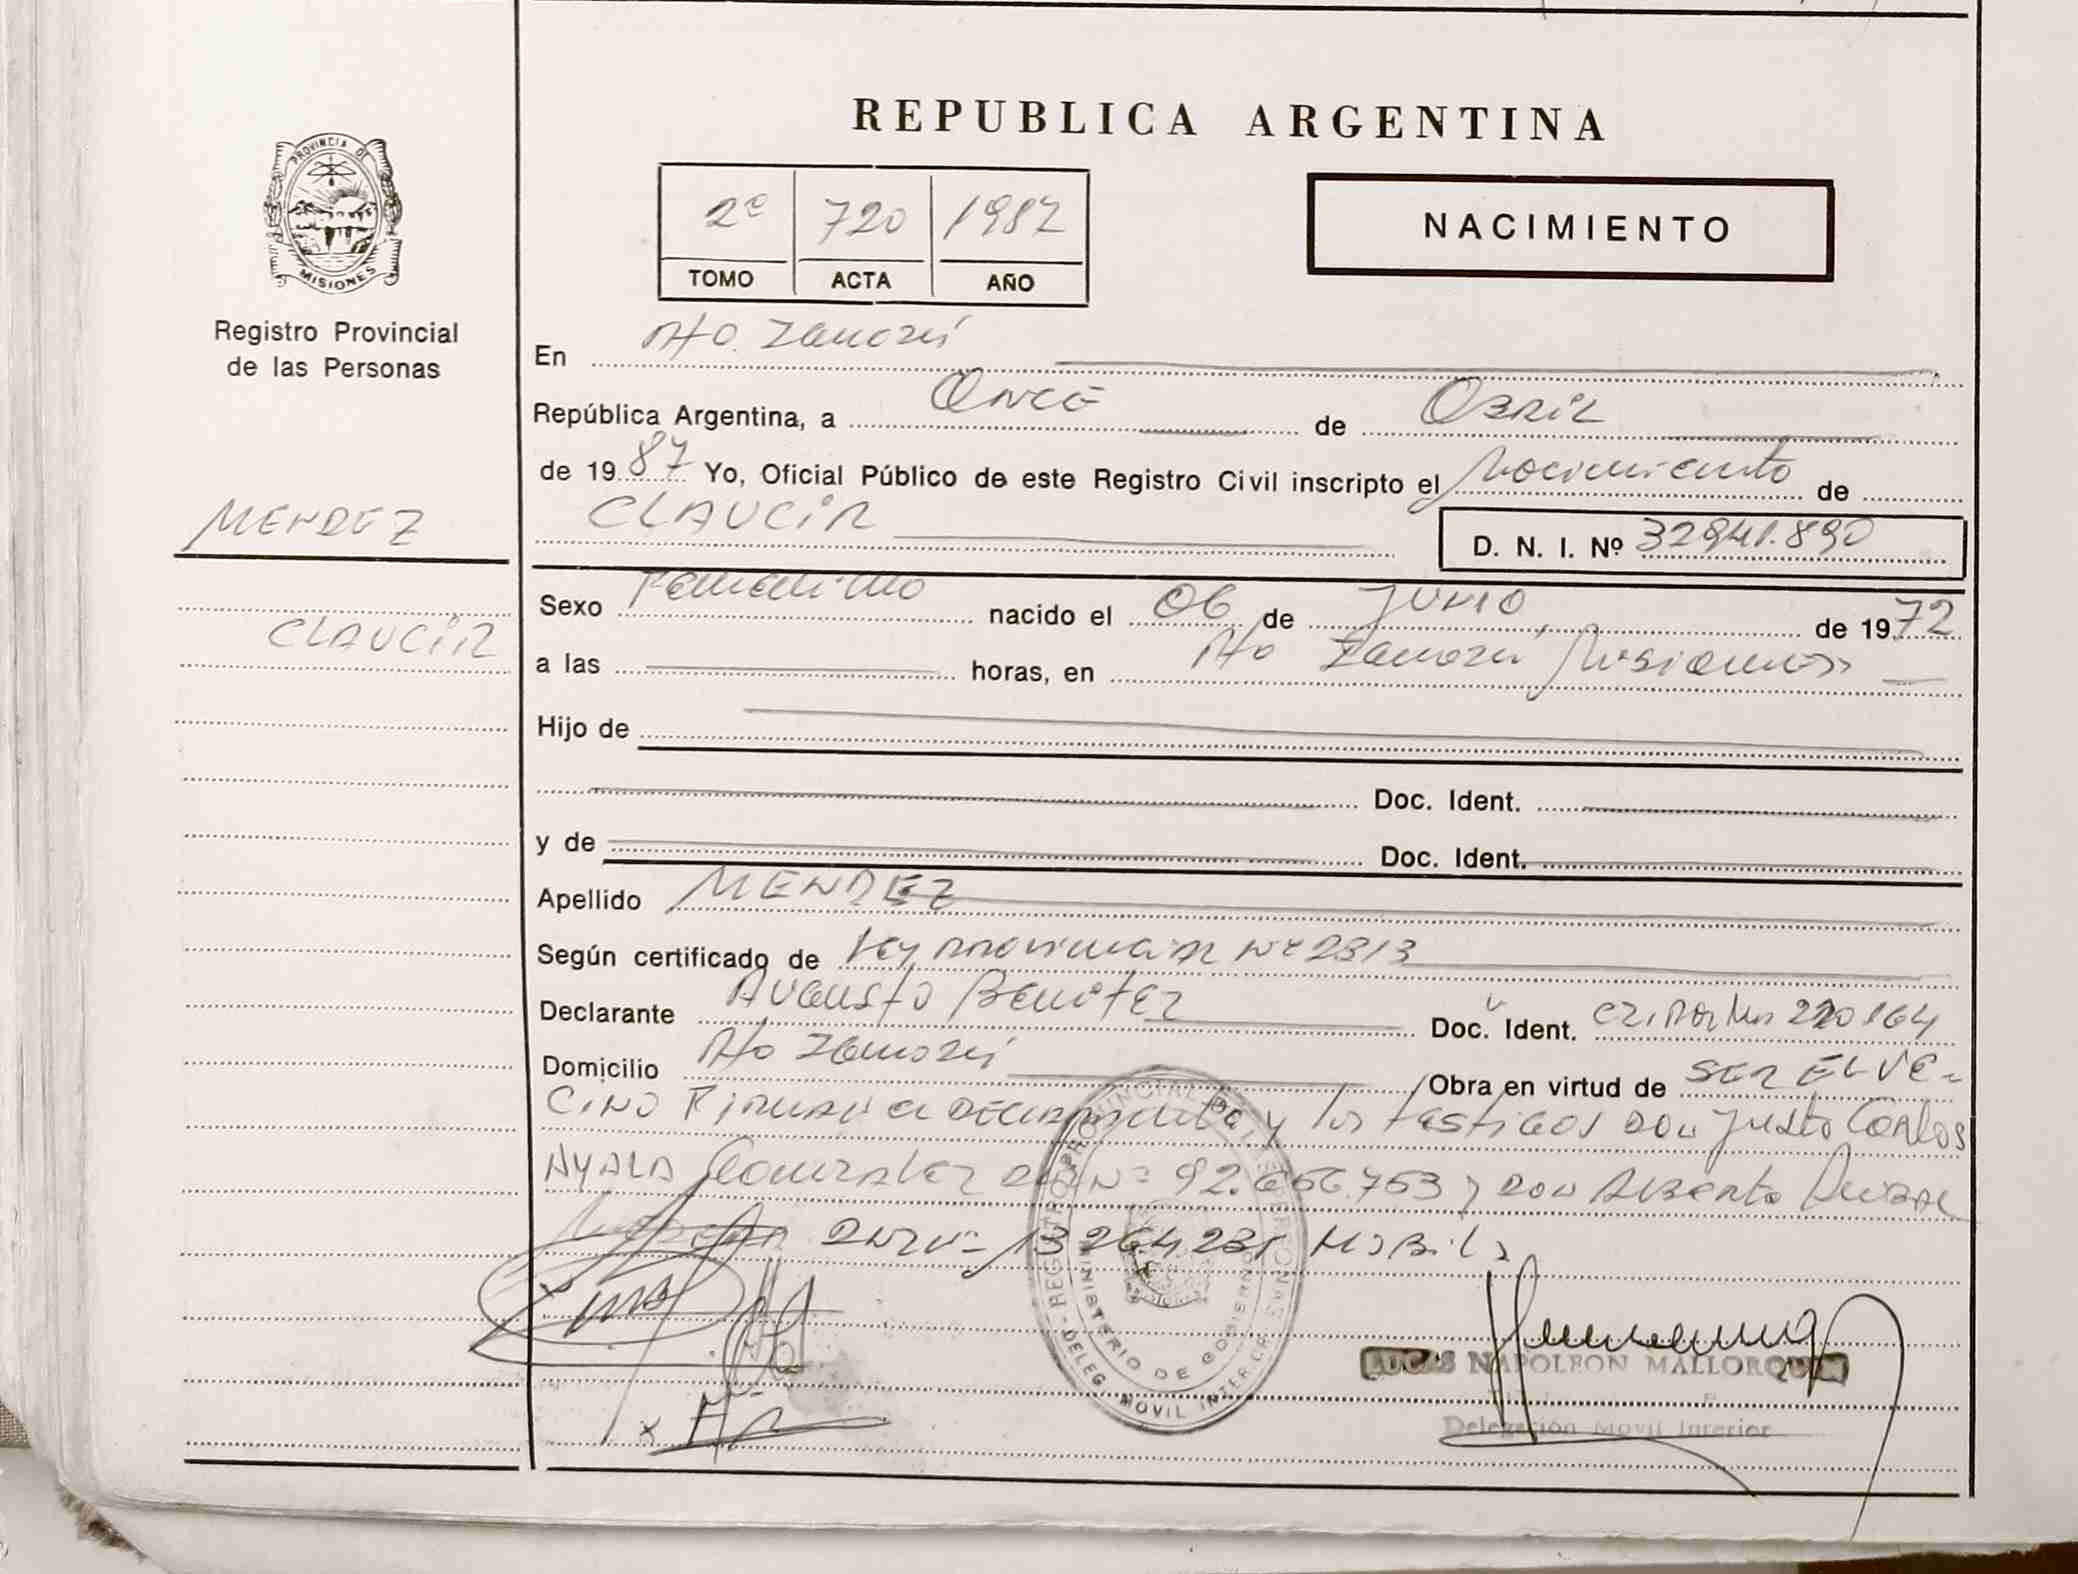 REPUBLICA ARGENTINA
PROVINCIA DE
MISIONES
Registro Provincial
de las Personas
2º 720 1987
TOMO ACTA AÑO
NACIMIENTO
En Aº
República Argentina, a Once de Abril
de 1987 Yo, Oficial Público de este Registro Civil inscripto el Nacimiento de
MENDEZ
CLAUCIR
D. N. I. Nº 32941.890
Sexo nacido el 06 de Junio, de 1972
CLAUCIR
a las horas, en Misiones
Hijo de
Doc. Ident.
y de Doc. Ident.
Apellido MENDEZ
Según certificado de Ley Provincial Nº 2313
Declarante Augusto Benitez Doc. Ident.
Domicilio Obra en virtud de SER EL VE-
CINO Firman el Declarante y los testigos Don Justo Carlos
AYALA Gonzalez DNI Nº 92.656.753 y Don Alberto
DNI Nº 13 264 231
REGISTRO PROVINCIAL DE LAS PERSONAS
MINISTERIO DE GOBIERNO
DELEG. MOVIL INTER.
LUCAS NAPOLEON MALLORQUIN
Delegación Movil Interior